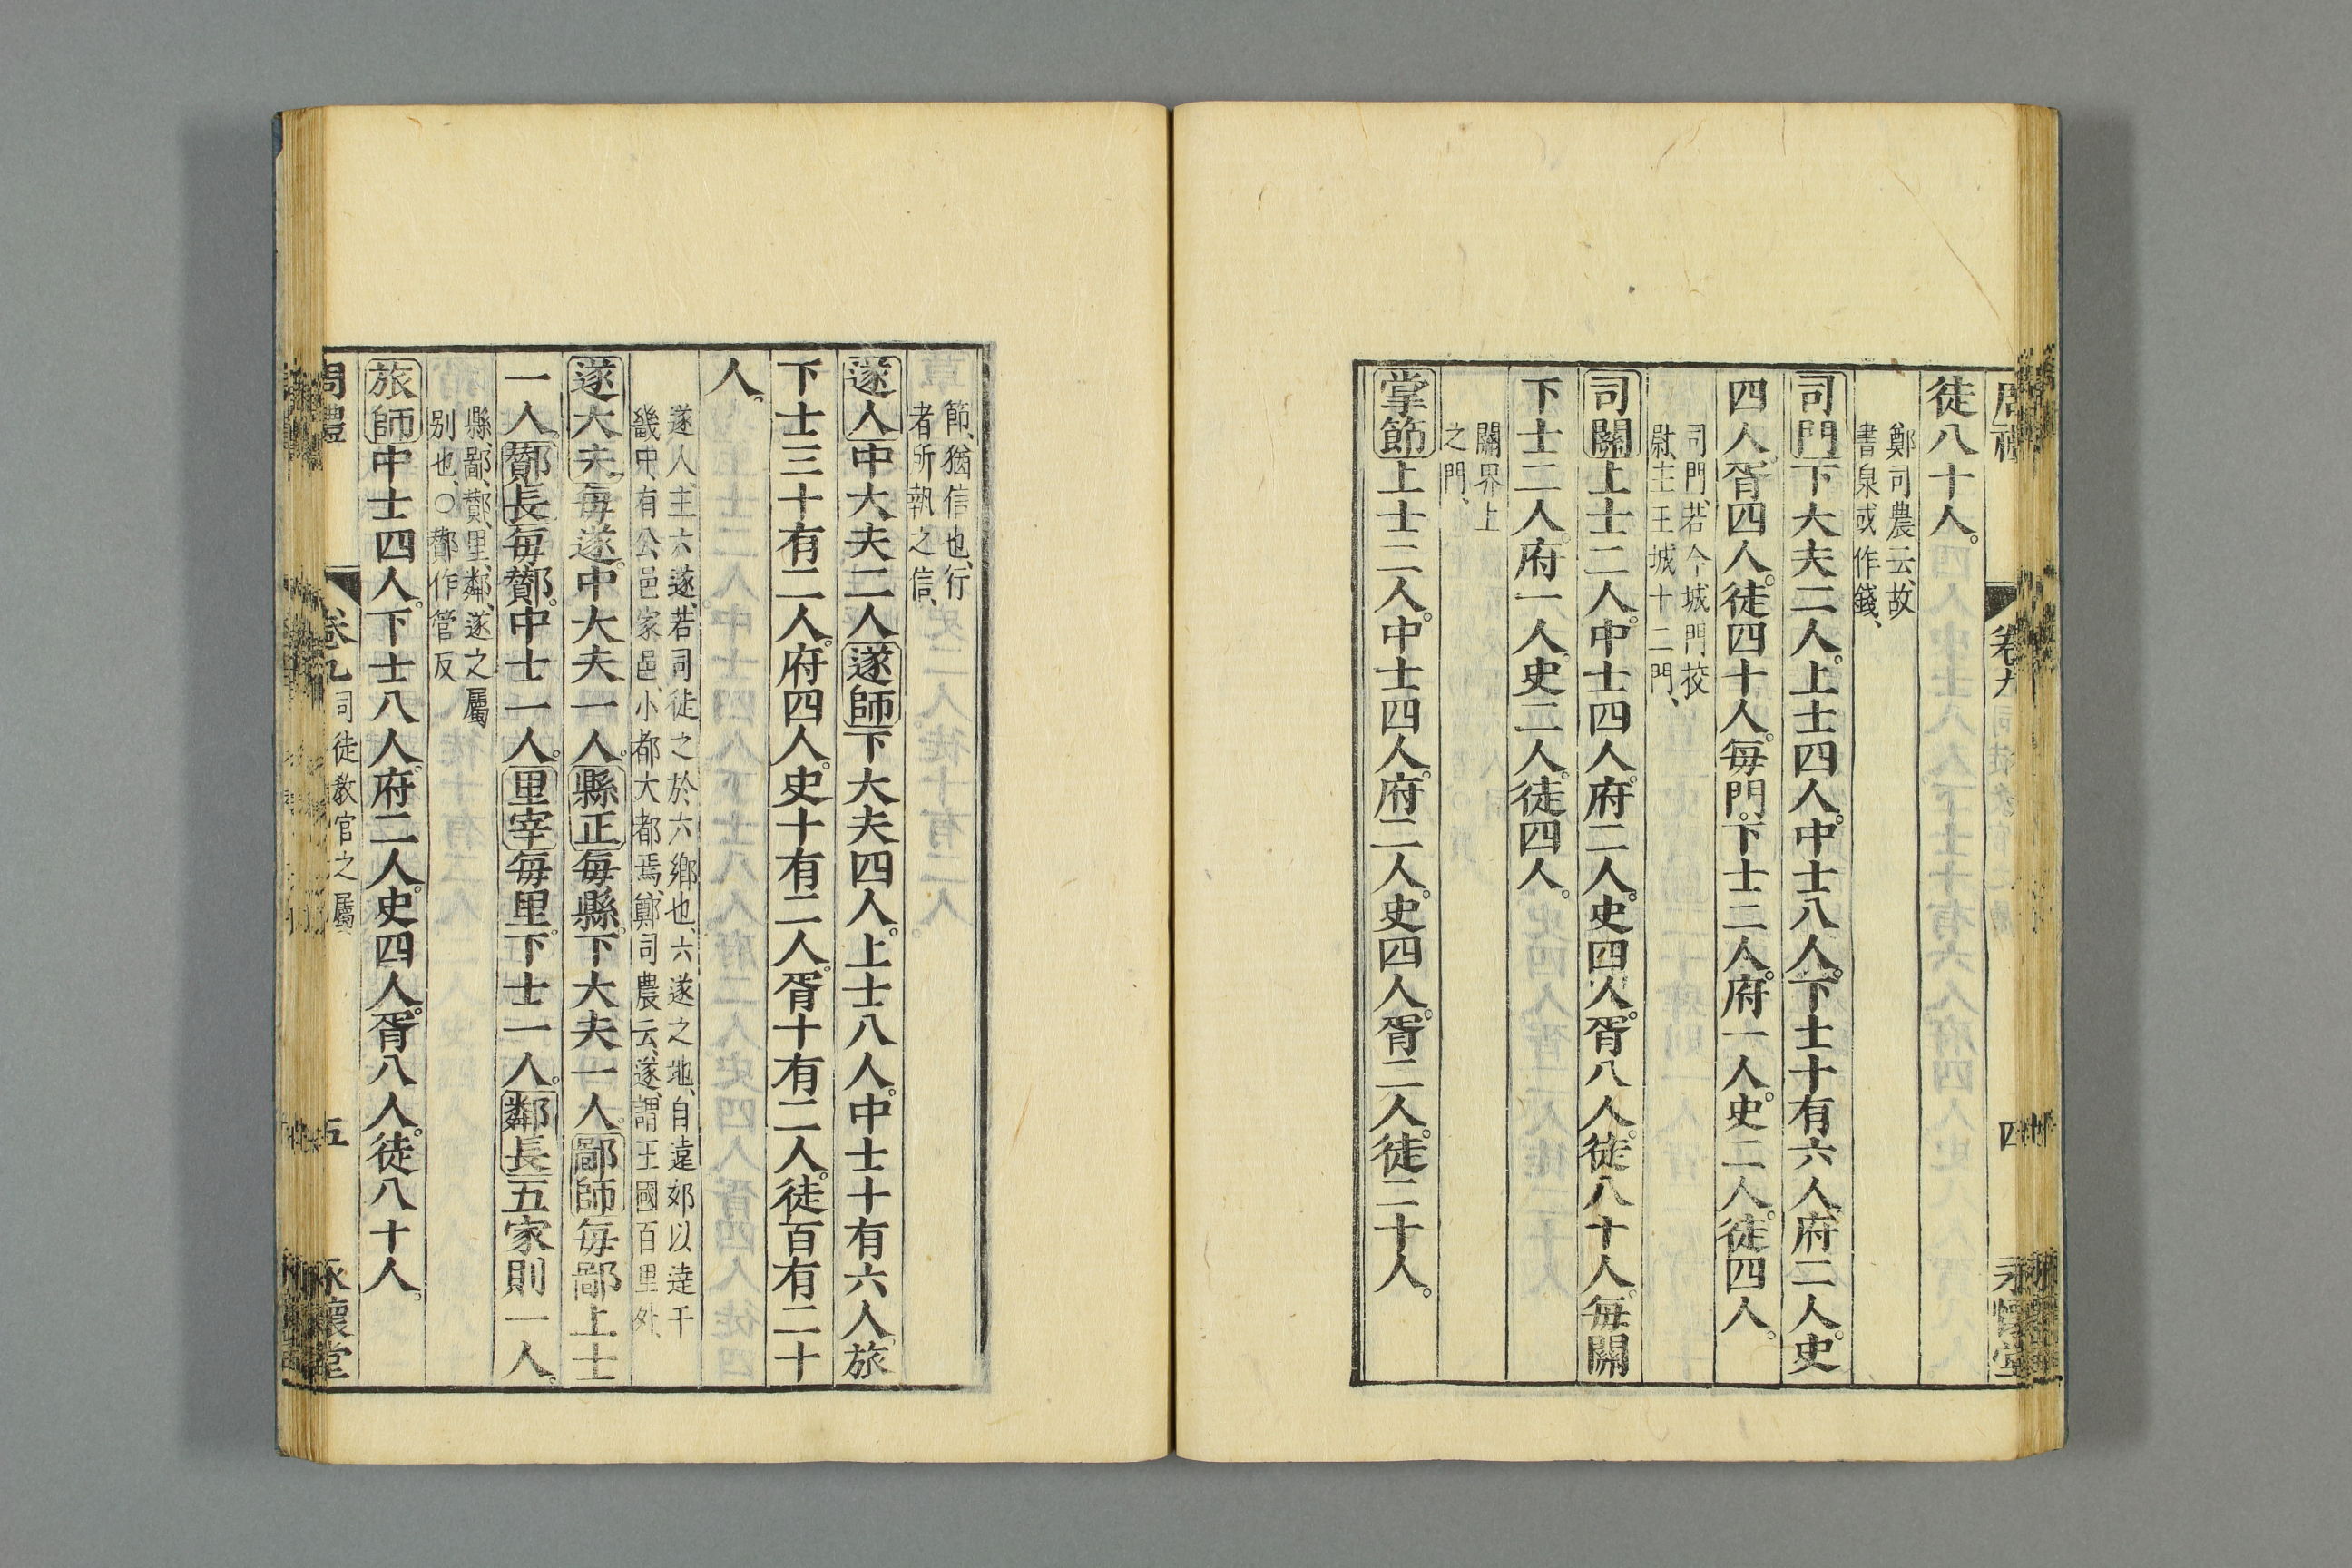 徒八十人。
鄭司農云、故
書泉或作錢、
司門下大夫二人。上士四人。中士八人。下士十有六人。府二人。史
四人。胥四人。徒四十人。每門。下士二人。府一人。史二人。徒四人。
司門、若今城門挍
尉、主王城十二門、
司關上士二人。中士四人。府二人。史四人。胥八人。徒八十人。每關
下士二人。府一人。史二人。徒四人。
關界上
之門、
掌節上士二人。中士四人。府二人。史四人。胥二人。徒二十人。
卷九
四
永懷堂
節、猶信也、行
者所執之信、
遂人中大夫二人遂師下大夫四人。上士八人。中士十有六人旅
下士三十有二人。府四人。史十有二人。胥十有二人。徒百有二十
人。
遂人、主六遂、若司徒之於六鄉也、六遂之地、自遠郊以達于
畿中、有公邑家邑、小都大都焉、鄭司農云、遂、謂王國百里外、
遂大夫每遂。中大夫一人。縣正每縣。下大夫一人。鄙師每鄙上士
一人。酇長每酇。中士一人。里宰每里。下士一人。鄰長五家則一人。
縣、鄙、酇、里、鄰、遂之屬
別也、○酇作管反
旅師中士四人。下士八人。府二人。史四人。胥八人。徒八十人。
周禮
卷九
司徒教官之屬
五
永懷堂